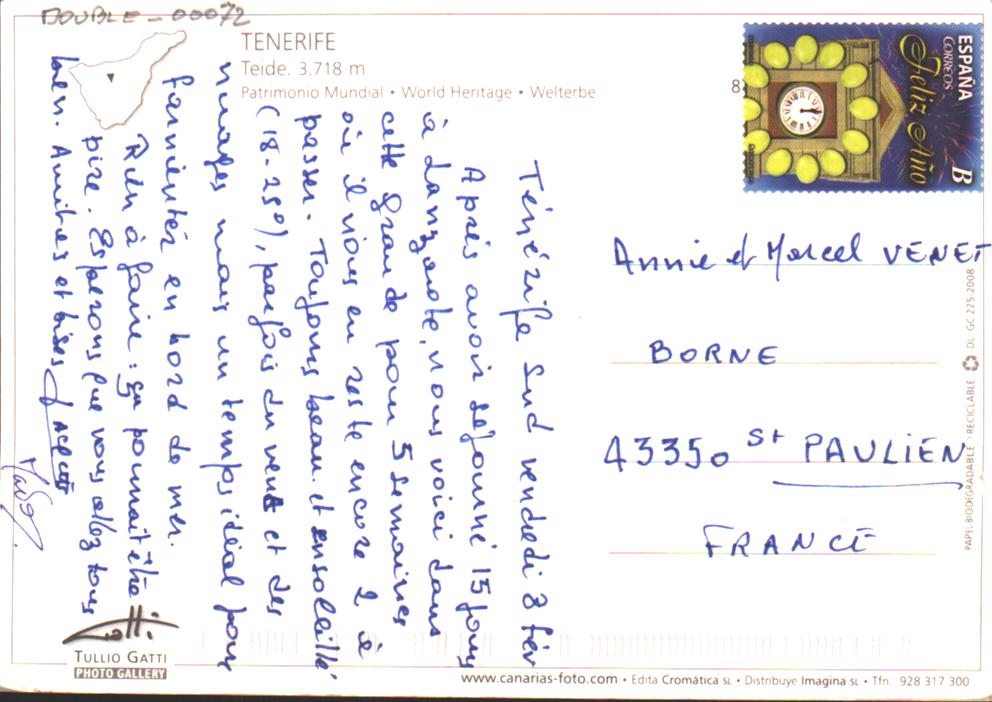 DOUBLE - 00072
TENERIFE
Teide. 3.718 m
Patrimonio Mundial • World Heritage • Welterbe
8
ESPAÑA
CORREOS
Feliz Año
B
Ténérife Sud vendredi 3 fév
Après avoir séjourné 15 jours
à Lanzarote, nous voici dans
cette grande pour 5 semaines
où il nous en reste encore 2 à
passer. Toujours beau et ensoleillé
(18-25°), parfois du vent et des
nuages mais un temps idéal pour
farnienter en bord de mer.
Rien à faire : ça pourrait être
pire. Espérons que vous allez tous
bien. Amitiés et bises
Annie et Marcel VENET
BORNE
43350 St PAULIEN
FRANCE
PAPEL BIODEGRADABLE Y RECICLABLE DL GC 225 2008
Gatti
TULLIO GATTI
PHOTO GALLERY
www.canarias-foto.com • Edita Cromática SL • Distribuye Imagina SL • Tfn.: 928 317 300